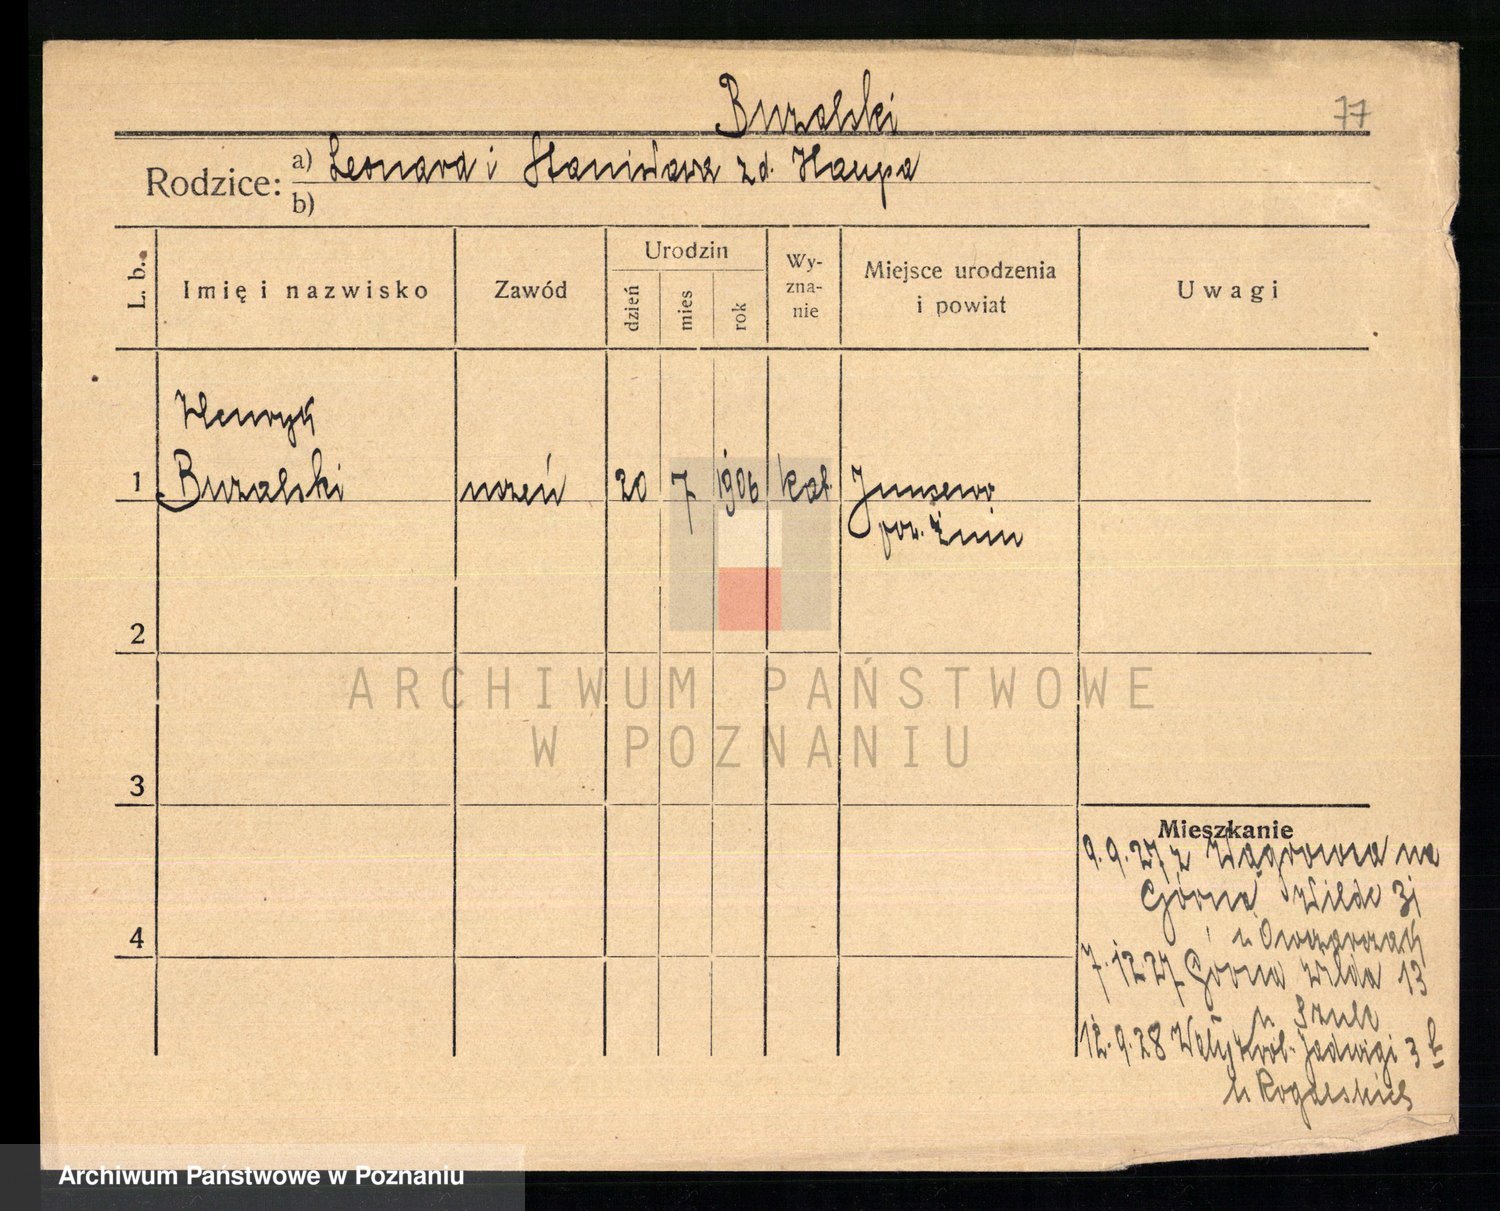 Buzalski
77
Rodzice: a) Leonard i Stanisława z d. Haupa
b)
L. b.
Imię i nazwisko
Zawód
Urodzin
dzień
mies
rok
Wy-
zna-
nie
Miejsce urodzenia
i powiat
Uwagi
Henryk
1 Buzalski uczeń 20 7 1906 kat. Juncewo
pow. Żnin
2
3
4
Mieszkanie
9.9.27 z Wągrowca na
Górna Wilde 31
u Owczarzak
7.12.27 Górna Wilda 13
u Szulc
12.9.28 Wały Król. Jadwigi 3
u Rogalskich
ARCHIWUM PAŃSTWOWE
W POZNANIU
Archiwum Państwowe w Poznaniu